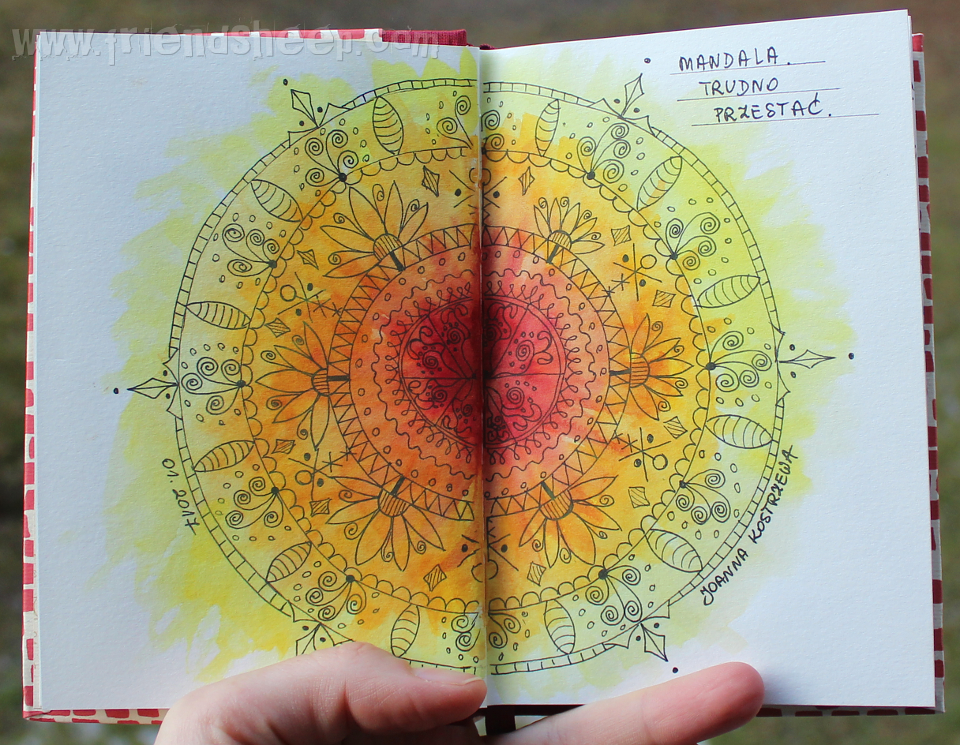 www.friendsheep.com
MANDALA.
TRUDNO
PRZESTAĆ.
01.2017
JOANNA KOSTRZEWA